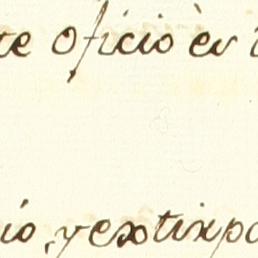 te oficio èr
io, y extixpa